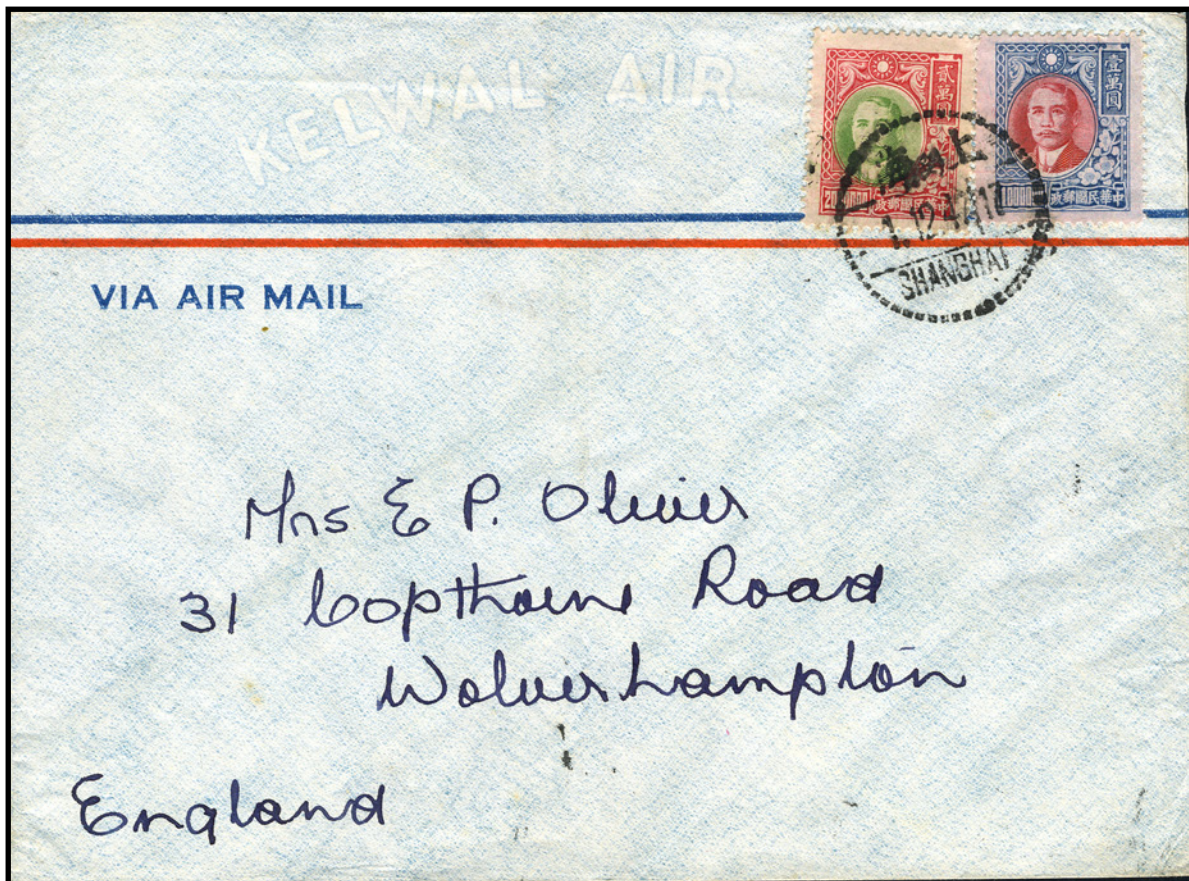 KELWAL AIR
貳萬圓
壹萬圓
政郵國民華中
政郵國民華中
海上
SHANGHAI
VIA AIR MAIL
Mrs E P. Olivier
31 Copthorne Road
Wolverhampton
England